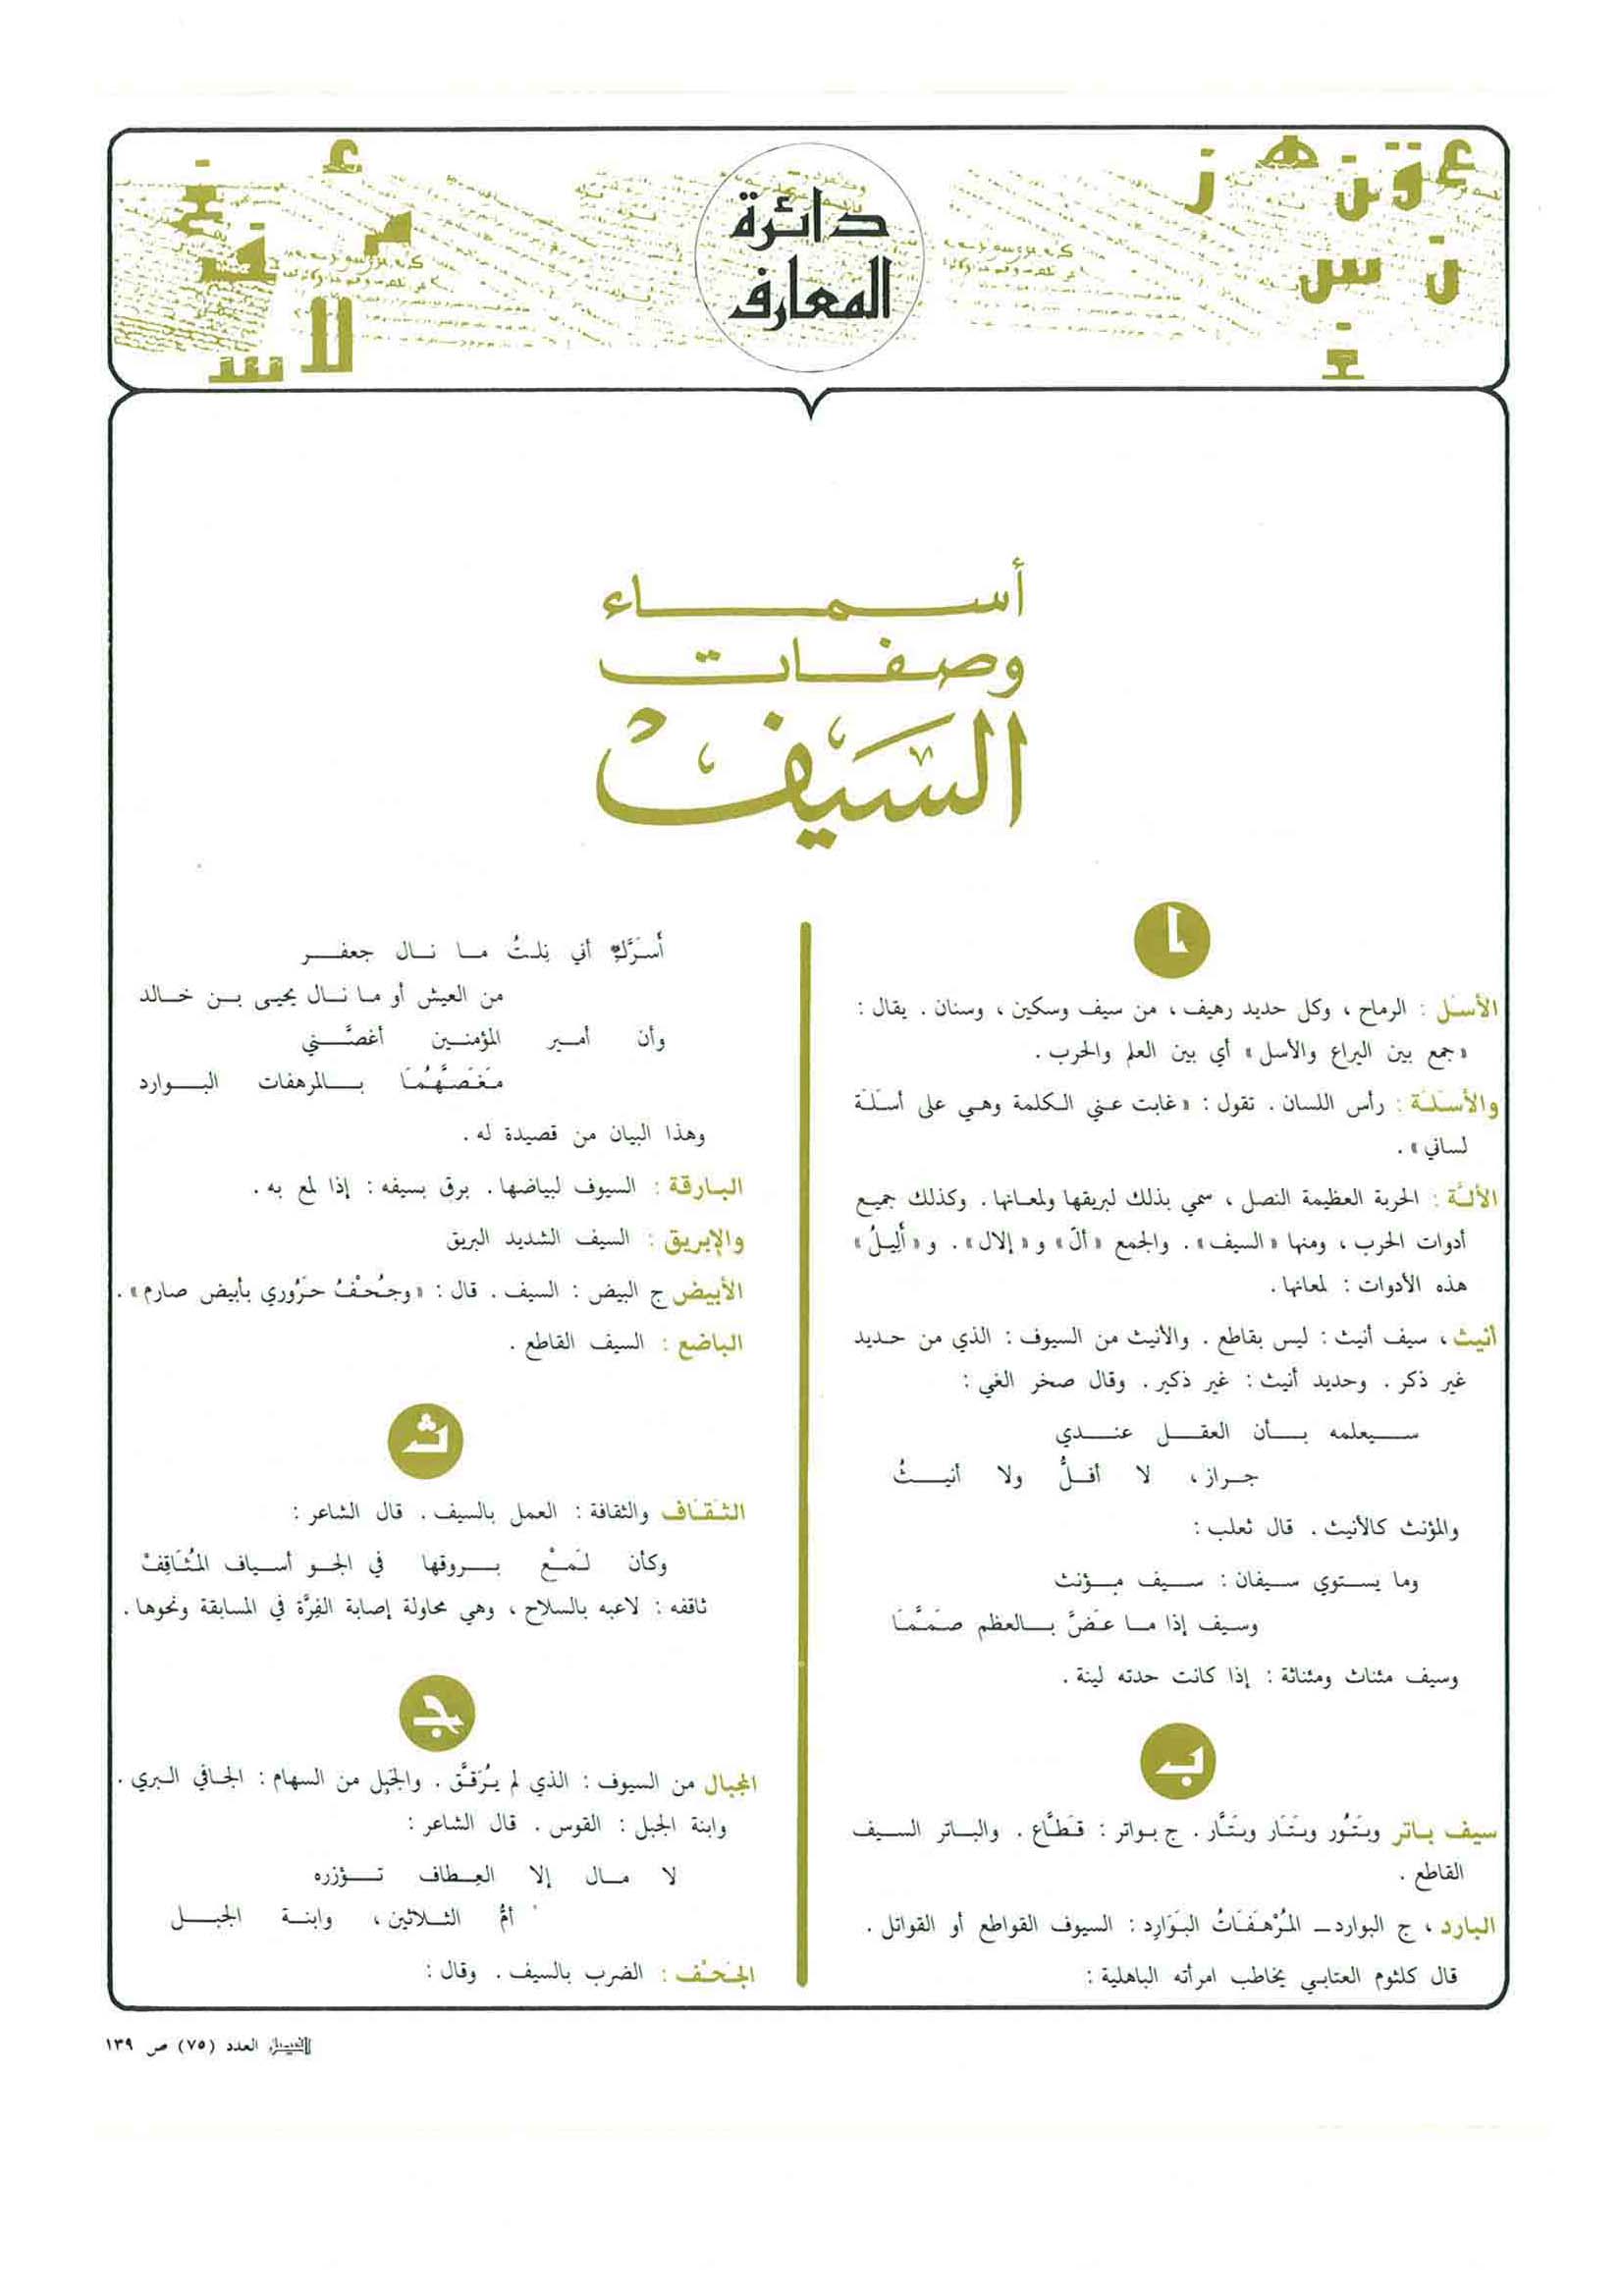 دائرة
المعارف
أسماء
وصفات
السَيفْ
ا
الأسَل : الرماح ، وكل حديد رهيف ، من سيف وسكين ، وسنان . يقال :
«جمع بين اليراع والأسل» أي بين العلم والحرب .
والأسَلَة : رأس اللسان . تقول : «غابت عني الكلمة وهي على أسَلَة
لساني» .
الألَّة : الحربة العظيمة النصل ، سمي بذلك لبريقها ولمعانها . وكذلك جميع
أدوات الحرب ، ومنها «السيف» . والجمع «ألّ» و «إلال» . و «أَلِيلُ»
هذه الأدوات : لمعانها .
أنيث ، سيف أنيث : ليس بقاطع . والأنيث من السيوف : الذي من حديد
غير ذكر . وحديد أنيث : غير ذكير . وقال صخر الغي :
سيعلمه بأن العقل عندي
جراز ، لا أفلُّ ولا أنيثُ
والمؤنث كالأنيث . قال ثعلب :
وما يستوي سيفان : سيف مؤنث
وسيف إذا ما عَضَّ بالعظم صَمَّمَا
وسيف مئناث ومئناثة : إذا كانت حدته لينة .
ب
سيف باتر وبَتُور وبَتَار وبَتَّار . ج بواتر : قَطَّاع . والباتر السيف
القاطع .
البارد ، ج البوارد ـ المُرْهَفَاتُ البَوَارِد : السيوف القواطع أو القواتل .
قال كلثوم العتابي يخاطب امرأته الباهلية :
أَسَرَّكِ أني نِلتُ ما نال جعفر
من العيش أو ما نال يحيى بن خالد
وأن أمير المؤمنين أغصَّني
مَغَصَّهُمَا بالمرهفات البوارد
وهذا البيان من قصيدة له .
البارقة : السيوف لبياضها . برق بسيفه : إذا لمع به .
والإبريق : السيف الشديد البريق
الأبيض ج البيض : السيف . قال : «وجُحْفُ حَرُوري بأبيض صارم» .
الباضع : السيف القاطع .
ث
الثقَاف والثقافة : العمل بالسيف . قال الشاعر :
وكأن لَمَعْ بروقها في الجو أسياف المُثَاقِفْ
ثاقفه : لاعبه بالسلاح ، وهي محاولة إصابة الغِرَّة في المسابقة ونحوها .
ج
المجبال من السيوف : الذي لم يُرَقَّق . والجَبِل من السهام : الجافي البري .
وابنة الجبل : القوس . قال الشاعر :
لا مال إلا العِطاف تؤزره
أمُّ الثلاثين ، وابنة الجبل
الجَحْف : الضرب بالسيف . وقال :
الفيصل العدد (٧٥) ص ١٣٩